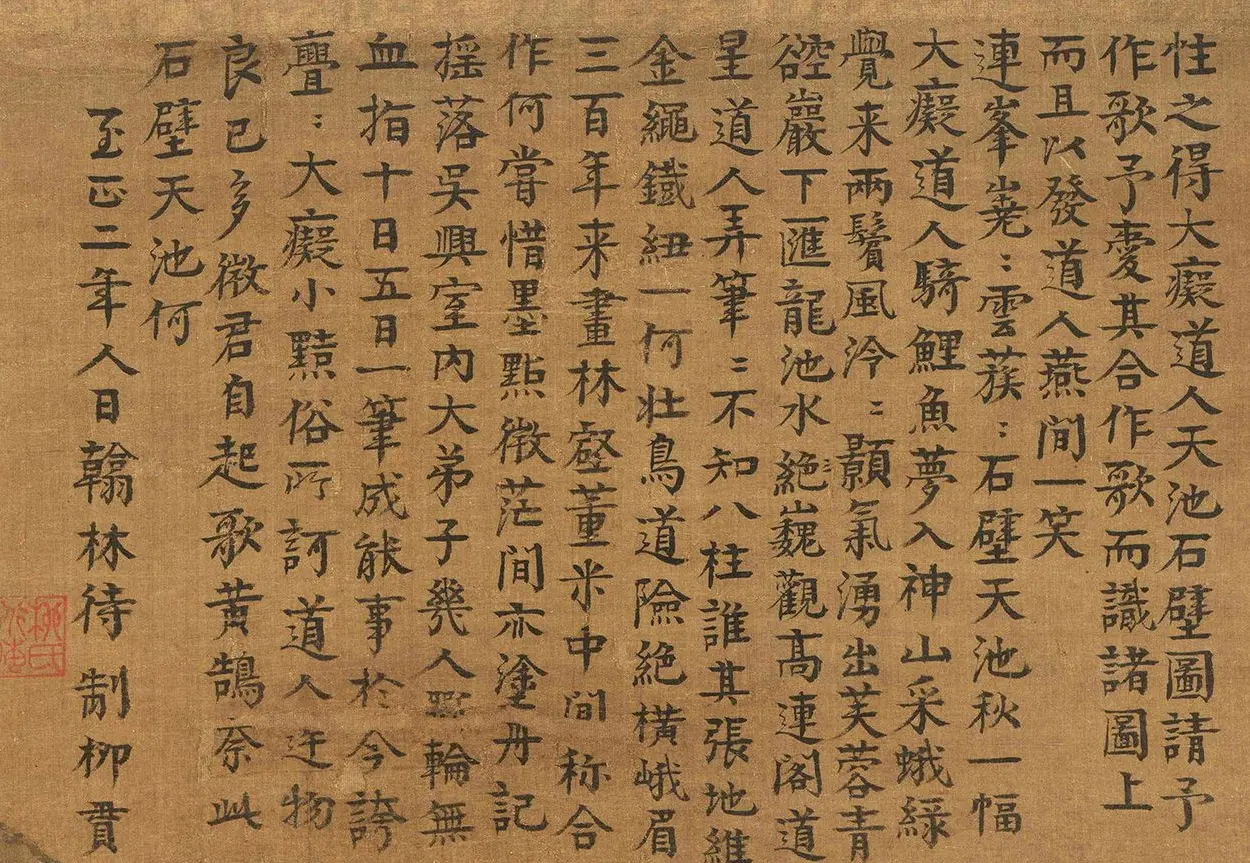 性之得大癡道人天池石壁圖請予
作歌予愛其合作歌而識諸圖上
而且以發道人燕間一笑
連峯嶤〻雲蔟〻石壁天池秋一幅
大癡道人騎鯉魚夢入神山采蛾緑
覺来兩鬢風泠〻顥氣湧出芙蓉青
硿巖下匯龍池水絶巍觀高連閣道
星道人弄筆〻不知八柱誰其張地維
金繩鐵紐一何壯鳥道險絶橫峨眉
三百年来畫林壑董米中間称合
作何嘗惜墨點微茫間亦塗丹記
搖落吳興室內大弟子幾人斵輪無
血指十日五日一筆成能事於今誇
亹〻大癡小黠俗所訶道人迕物
良已多微君自起歌黃鵠奈此
石壁天池何
至正二年人日翰林待制柳貫